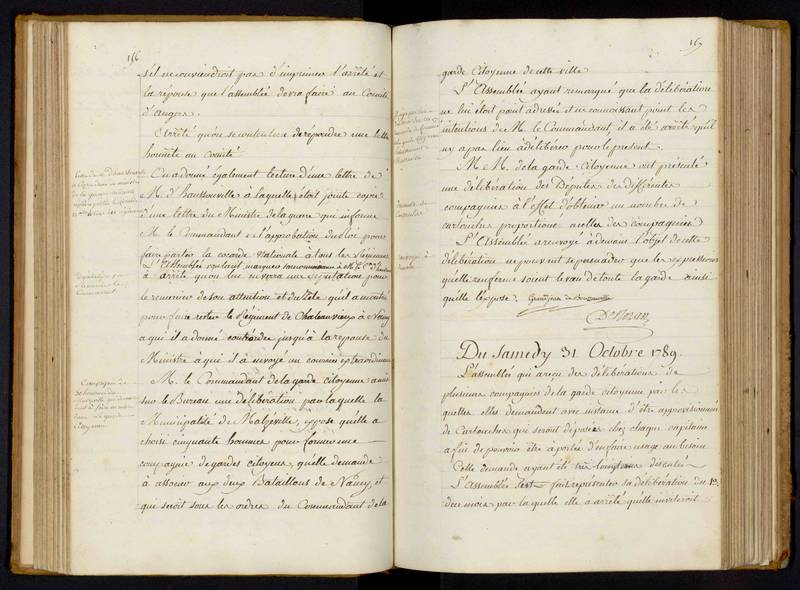 156
s'il ne conviendroit pas d'imprimer l'arrêté et
la réponse que l'assemblée devra faire au Comité
d'angers.
arrêté qu'on se contentera de répondre une lettre
honnête au comité
On a donné également lecture d'une lettre de
M. d'Haussonville à laquelle étoit jointe copie
d'une lettre du Ministre de la guerre qui informe
M. le Commandant de l'approbation du Roi pour
faire porter la cocarde nationale à tous les Régimens
L'Assemblée voulant marquer
a arrêté qu'on lui enverra une Députation pour
le remercier de son attention et du zele qu'il a montré
pour faire rester le Régiment de Chateauvieux à Nancy
a qui il a donné contrordre jusqu'à la reponse du
Ministre à qui il a envoyé un courier extraordinaire
M. le Commandant de la garde citoyenne a mis
sur le Bureau une délibération par laquelle la
Municipalité de Malzéville, expose qu'elle a
choisi cinquante hommes pour former une
compagnie de gardes citoyens, qu'elle demande
à associer aux deux Bataillons de Nancy, et
qui seroit sous les ordres du Commandant de la
157
garde Citoyenne de cette ville
L'Assemblée ayant remarqué que la délibération
ne lui étoit point adressée et ne connoissant point les
intentions de M. le Commandant, il a été arrêté qu'il
n'y a pas lieu à délibérer pour le present.
M. M. de la garde Citoyenne ont présenté
une délibération des Députés des différentes
compagnies à l'effet d'obtenir un nombre de
cartouches proportionné a celles des compagnies
L'Assemblée a renvoyé à demain l'objet de cette
délibération ne pouvant se persuader que les expressions
qu'elle renferme soient le vœu de toute la garde ainsi
qu'elle l'expose.
Du Samedy 31 Octobre 1789.
L'assemblée qui a reçu des délibérations de
plusieurs compagnies de la garde citoyenne par les
quelles elles demandent avec instance d'être approvisionnées
de Cartouches qui seront déposées chez chaque capitaine
afin de pouvoir être à portée d'en faire usage au besoin
Cette demande ayant été très longtems discutée
L'Assemblée s'est fait représenter sa délibération du 12
de ce mois par laquelle elle a arrêté qu'elle inviteroit